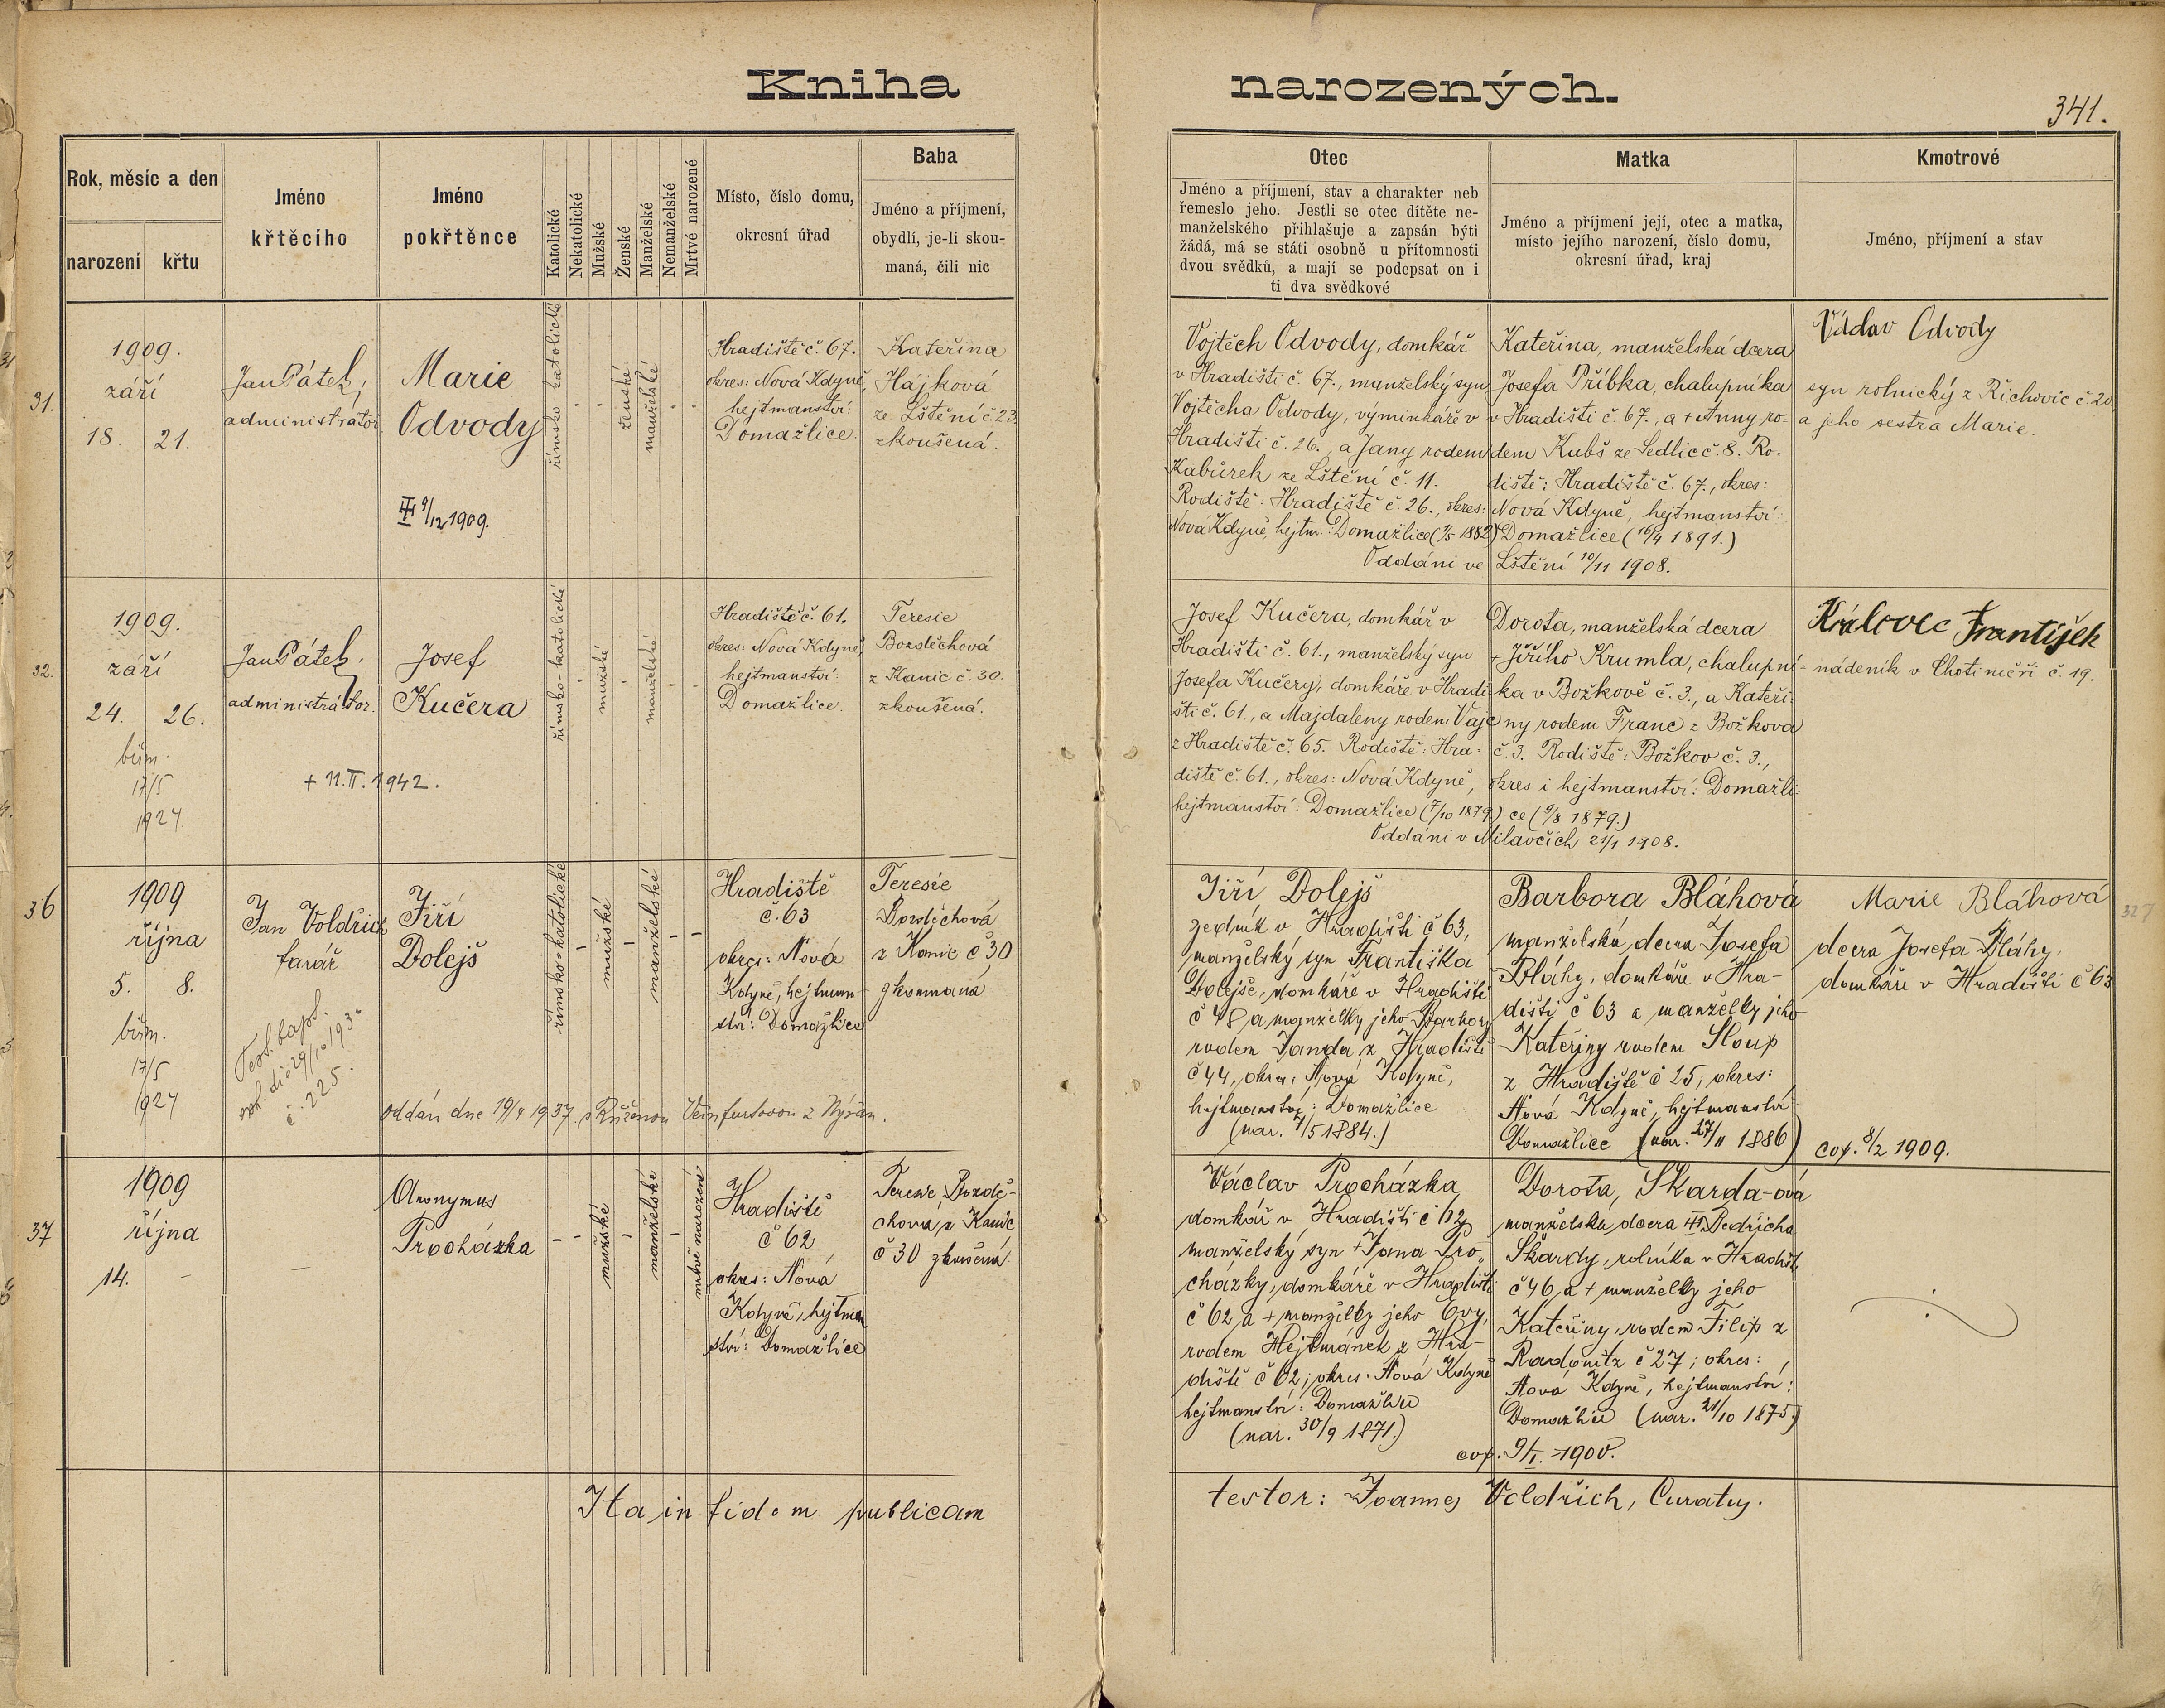 Kniha narozených.
341.
Rok, měsíc a den
narození
křtu
Jméno
křtěcího
Jméno
pokřtěnce
Katolické
Nekatolické
Mužské
Ženské
Manželské
Nemanželské
Mrtvé narozené
Místo, číslo domu,
okresní úřad
Baba
Jméno a příjmení,
obydlí, je-li skou-
maná, čili nic
Otec
Jméno a příjmení, stav a charakter neb
řemeslo jeho. Jestli se otec dítěte ne-
manželského přihlašuje a zapsán býti
žádá, má se státi osobně u přítomnosti
dvou svědků, a mají se podepsat on i
ti dva svědkové
Matka
Jméno a příjmení její, otec a matka,
místo jejího narození, číslo domu,
okresní úřad, kraj
Kmotrové
Jméno, příjmení a stav
31.
1909.
září
18. 21.
Jan Pátek,
administrátor
Marie
Odvody
9/12 1909.
římsko katolické
ženské
manželské
Hradiště č. 67.
okres: Nová Kdyně,
hejtmanství:
Domažlice.
Kateřina
Hájková
ze Lštění č. 23
zkoušená.
Vojtěch Odvody, domkář
v Hradišti č. 67., manželský syn
Vojtěcha Odvody, výminkáře v
Hradišti č. 26., a Jany rodem
Kabůrek ze Lštění č. 11.
Rodiště: Hradiště č. 26., okres:
Nová Kdyně, hejtm.: Domažlice (1/5 1882)
Kateřina, manželská dcera
Josefa Příbka, chalupníka
v Hradišti č. 67., a + Anny ro-
dem Kubš ze Sedlic č. 8. Ro-
diště: Hradiště č. 67., okres:
Nová Kdyně, hejtmanství:
Domažlice (16/4 1891.)
Oddáni ve Lštění 10/11 1908.
Václav Odvody
syn rolnický z Řichovic č. 20
a jeho sestra Marie.
32.
1909.
září
24. 26.
biřm.
17/5
1927.
Jan Pátek,
administrátor.
Josef
Kučera
+ 11. II. 1942.
římsko-katolické
mužské
manželské
Hradiště č. 61.
okres: Nová Kdyně,
hejtmanství:
Domažlice.
Teresie
Bozděchová
z Kanic č. 30.
zkoušená.
Josef Kučera, domkář v
Hradišti č. 61., manželský syn
Josefa Kučery, domkáře v Hradi-
šti č. 61., a Majdaleny rodem Vajc
z Hradiště č. 65. Rodiště: Hra-
diště č. 61., okres: Nová Kdyně,
hejtmanství: Domažlice (7/10 1879.)
Dorota, manželská dcera
+ Jiřího Krumla, chalupní-
ka v Božkově č. 3., a Kateři-
ny rodem Franc z Božkova
č. 3. Rodiště: Božkov č. 3.,
okres i hejtmanství: Domažli-
ce (9/8 1879.)
Oddáni v Milavčích 21/1 1908.
Královec František
nádeník v Chotiměři č. 19.
36
1909
října
5. 8.
biřm.
17/5
1927
Jan Voldřich
farář
č. 225.
Jiří
Dolejš
oddán dne 19/4 1937 s Růženou
římsko-katolické
mužské
manželské
Hradiště
č. 63
okres: Nová
Kdyně, hejtman-
ství: Domažlice
Teresie
Bozděchová
z Kanic č 30
zkoumaná
Jiří Dolejš
zedník v Hradišti č 63,
manželský syn Františka
Dolejše, domkáře v Hradišti
č 48 a manželky jeho Barbory
rodem Janda z Hradiště
č 44, okres: Nová Kdyně,
hejtmanství: Domažlice
(nar. 7/5 1884.)
Barbora Bláhová
manželská dcera Josefa
Bláhy, domkáře v Hra-
dišti č 63 a manželky jeho
Kateřiny rodem Sloup
z Hradiště č 25; okres:
Nová Kdyně, hejtmanství
Domažlice (nar. 27/11 1886)
Marie Bláhová
dcera Josefa Bláhy,
domkáře v Hradišti č 63
cop. 8/2 1909.
327
37
1909
října
14. -
Anonymus
Procházka
mužské
manželské
mrtvě narozené
Hradiště
č 62
okres: Nová
Kdyně, hejtman
ství: Domažlice
Teresie Bozdě-
chová z Kanic
č 30 zkoušená.
Václav Procházka
domkář v Hradišti č 62
manželský syn + Jana Pro-
cházky, domkáře v Hradišti
č 62 a + manželky jeho Evy,
rodem Hejtmánek z Hra-
diště č 62; okres: Nová Kdyně
hejtmanství: Domažlice
(nar. 30/9 1871.)
Dorota, Skarda-ová
manželská dcera Bedřicha
Skardy, rolníka v Hradišti
č 46 a + manželky jeho
Kateřiny, rodem Filip z
Radonitz č 27; okres:
Nová Kdyně, hejtmanství:
Domažlice (nar. 21/10 1875)
cop. 9/I. 1900.
Ita in fidem publicam
testor: Joannes Voldřich, Curatus.